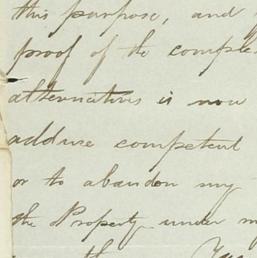 this purpose, and
proof of the comple
alternative is now
adduce competent
or to abandon my
the Property under m